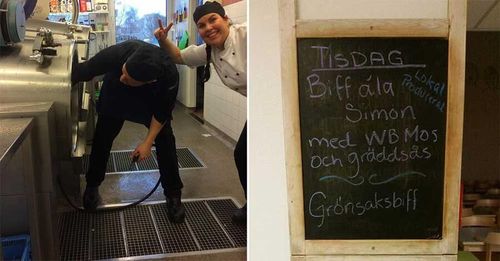 TISDAG
Biff ála
Lokal
Producerat
Simon
med WB Mos
och gräddsås
Grönsaksbiff